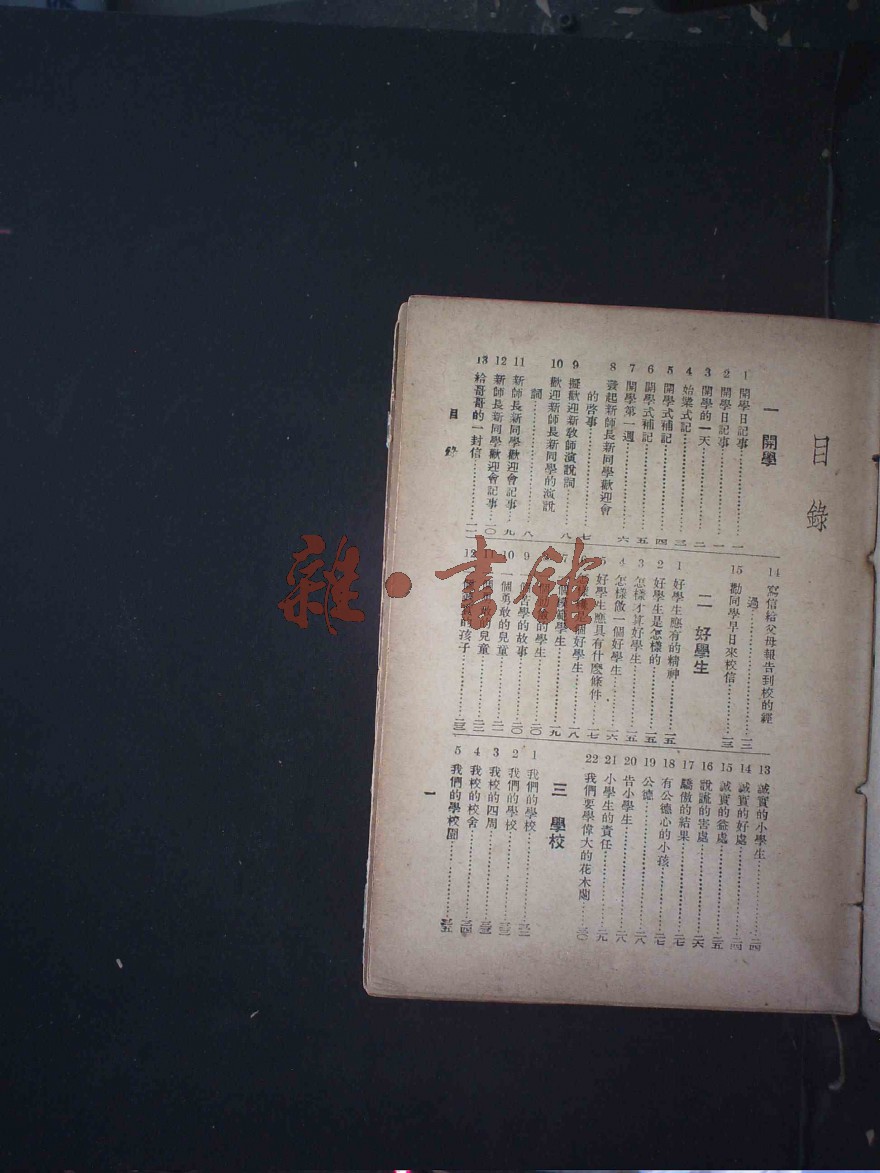 目錄
一 開學
1 開學日記事……一
2 開學日記事……一
3 開學的一天……二
4 始業式記……三
5 開學式補記……四
6 開學式補記……五
7 開學第一週……六
8 發起新師長新同學歡迎會
的啓事……七
9 擬歡迎新教師演說詞……八
10 歡迎新師長新同學的演說
詞……八
11 新師長新同學歡迎會記事……九
12 新師長新同學歡迎會記事……一〇
13 給哥哥的一封信……一一
14 寫信給父母報告到校的經
過……一二
15 勸同學早日來校信……一三
二 好學生
1 好學生應有的精神……一五
2 好學生是怎樣的……一五
3 怎樣才算好學生……一五
4 怎樣做一個好學生……一六
5 好學生應具有什麼條件……一七
個好學生……一八
7 學生……一九
的學生……二〇
9 一個苦學的故事……二〇
10 一個勇敢的兒童……二一
11 的兒童……二二
12 的孩子……二三
13 誠實的小學生……二四
14 誠實的好處……二四
15 誠實的益處……二五
16 說謊的害處……二六
17 驕傲的結果……二七
18 有公德心的小孩……二七
19 公德……二八
20 告小學生……二八
21 小學生的責任……二九
22 我們要學偉大的花木蘭……三〇
三 學校
1 我們的學校……三二
2 我們的學校……三二
3 我校的四周……三三
4 我校的校舍……三四
5 我們的學校園……三五
目錄
一
雜·書館